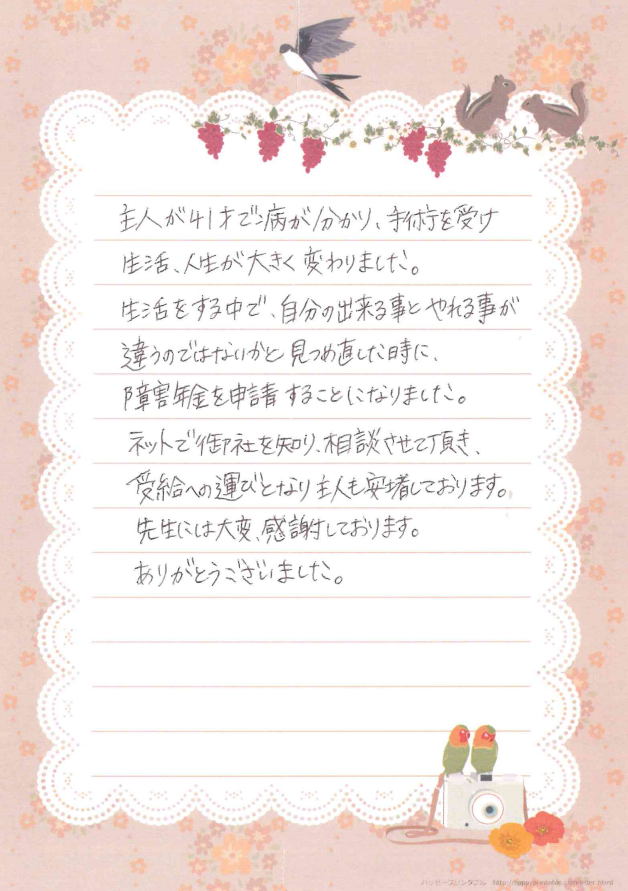 主人が41才で病が分かり、手術を受け
生活、人生が大きく変わりました。
生活をする中で、自分の出来る事とやれる事が
違うのではないかと見つめ直した時に、
障害年金を申請することになりました。
ネットで御社を知り、相談させて頂き、
受給への運びとなり主人も安堵しております。
先生には大変、感謝しております。
ありがとうございました。
ハッピープリンタブル